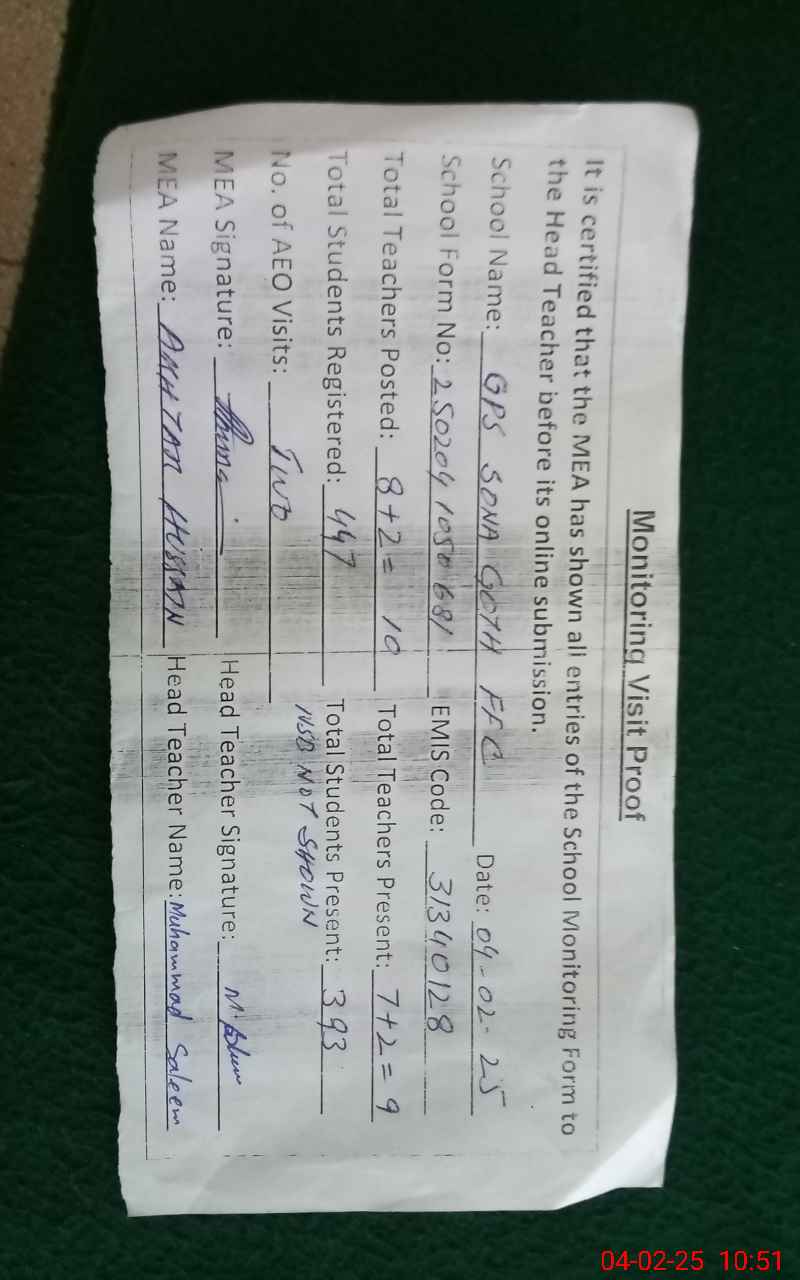 Monitoring Visit Proof
It is certified that the MEA has shown all entries of the School Monitoring Form to
the Head Teacher before its online submission.
School Name: GPS SONA GOTH FFC Date: 04-02-25
School Form No: 2502041050681 EMIS Code: 31340128
Total Teachers Posted: 8+2= 10 Total Teachers Present: 7+2=9
Total Students Registered: 447 Total Students Present: 393
No. of AEO Visits: Two NSB NOT SHOWN
MEA Signature: Head Teacher Signature:
MEA Name: AKHTAR HUSSAIN Head Teacher Name: Muhammad Saleem
04-02-25 10:51